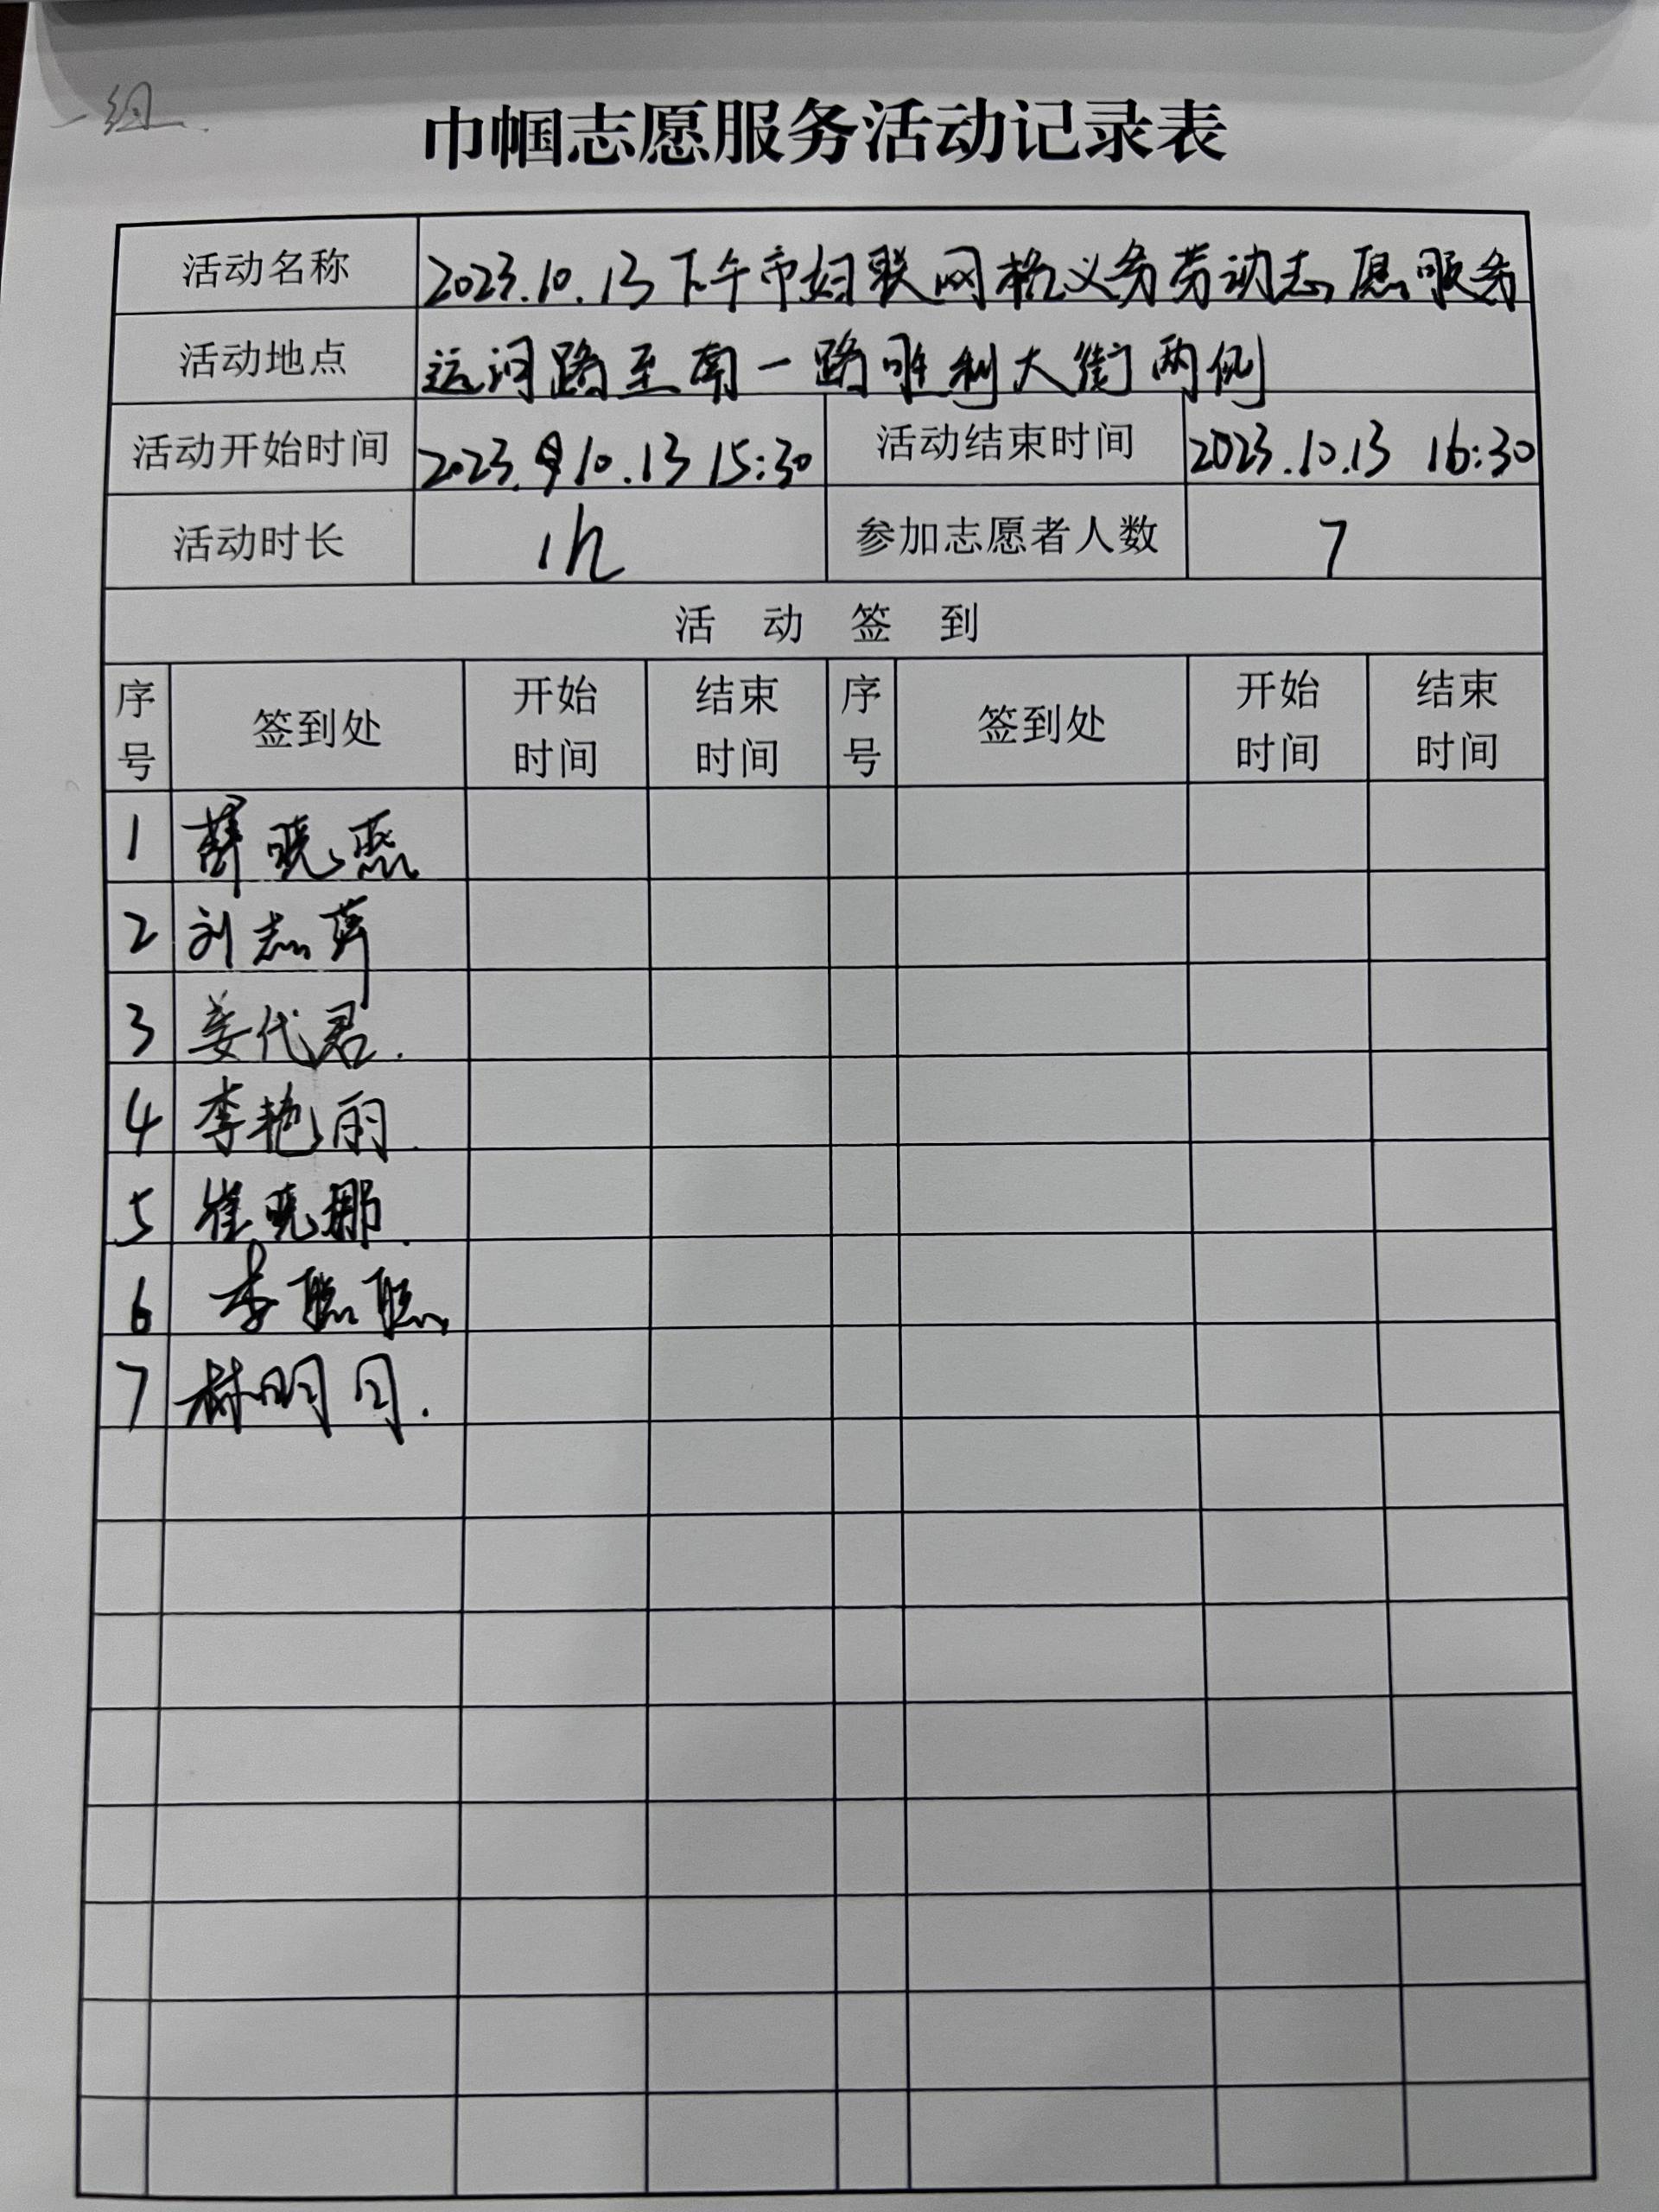 一组
巾帼志愿服务活动记录表
活动名称 2023.10.13下午市妇联网格义务劳动志愿服务
活动地点 运河路至南一路胜利大街两侧
活动开始时间 2023.10.13 15:30 活动结束时间 2023.10.13 16:30
活动时长 1h 参加志愿者人数 7
活动签到
序号 签到处 开始时间 结束时间 序号 签到处 开始时间 结束时间
1 薛晓燕
2 刘志萍
3 姜代君.
4 李艳丽.
5 崔晓娜.
6 李聪聪
7 林明月.